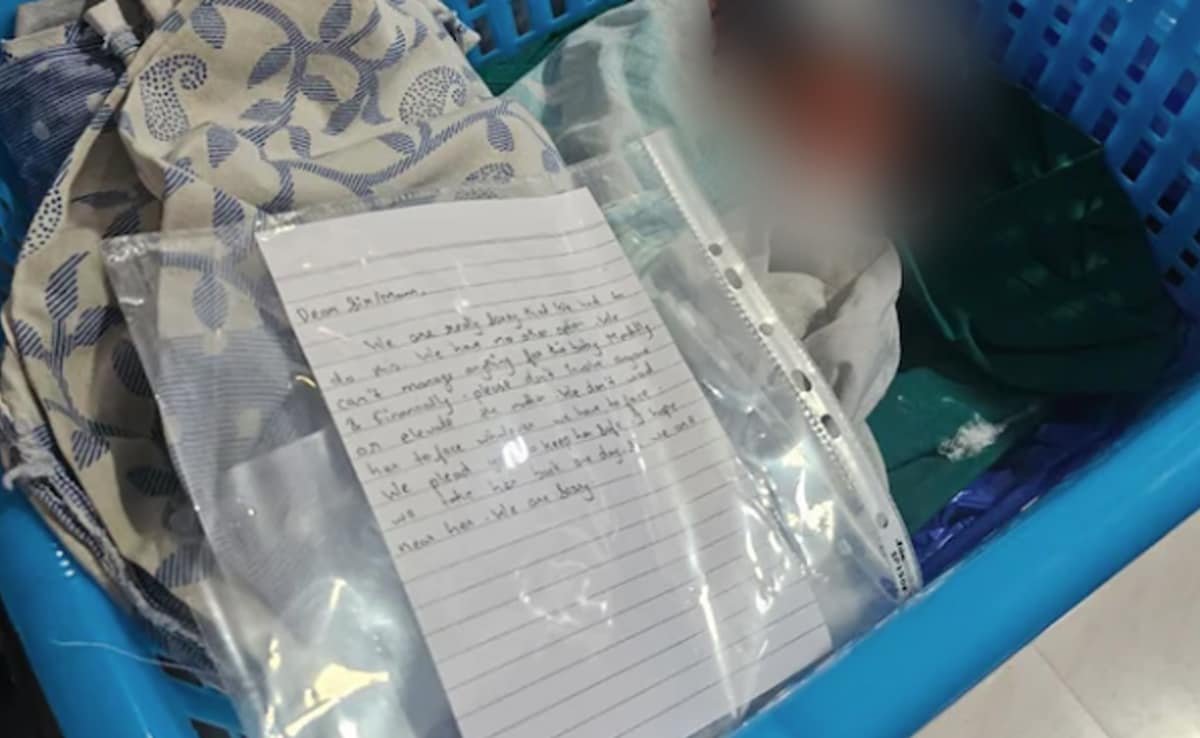 Dear Sir/Mam,
We are really sorry that we had to
do this. We have no other option. We
can't manage anything for this baby mentally
& financially. please don't involve anyone
or elevate the matter. We don't want
her to face whatever we have to face.
We plead you to keep her safe. I hope
we take her back one day. If we are
near her. We are sorry